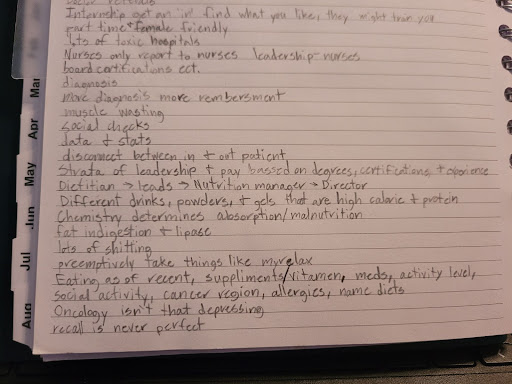 Internship get an in find what you like, they might train you
part time + female friendly
lots of toxic hospitals
Nurses only report to nurses leadership-nurses
board certifications ect.
diagnosis
more diagnosis more rembersment
muscle wasting
social checks
data + stats
disconnect between in + out patient
Strata of leadership + pay bassed on degrees, certifications, + experience
Dietitian → leads → Nutrition manager → Director
Different drinks, powders, + gels that are high caloric + protein
Chemistry determines absorption/malnutrition
fat indigestion + lipase
lots of shitting
preemptively take things like myrelax
Eating as of recent, suppliments/vitamen, meds, activity level,
social activity, cancer region, allergies, name diets
Oncology isn't that depressing
recall is never perfect
Mar
Apr
May
Jun
Jul
Aug